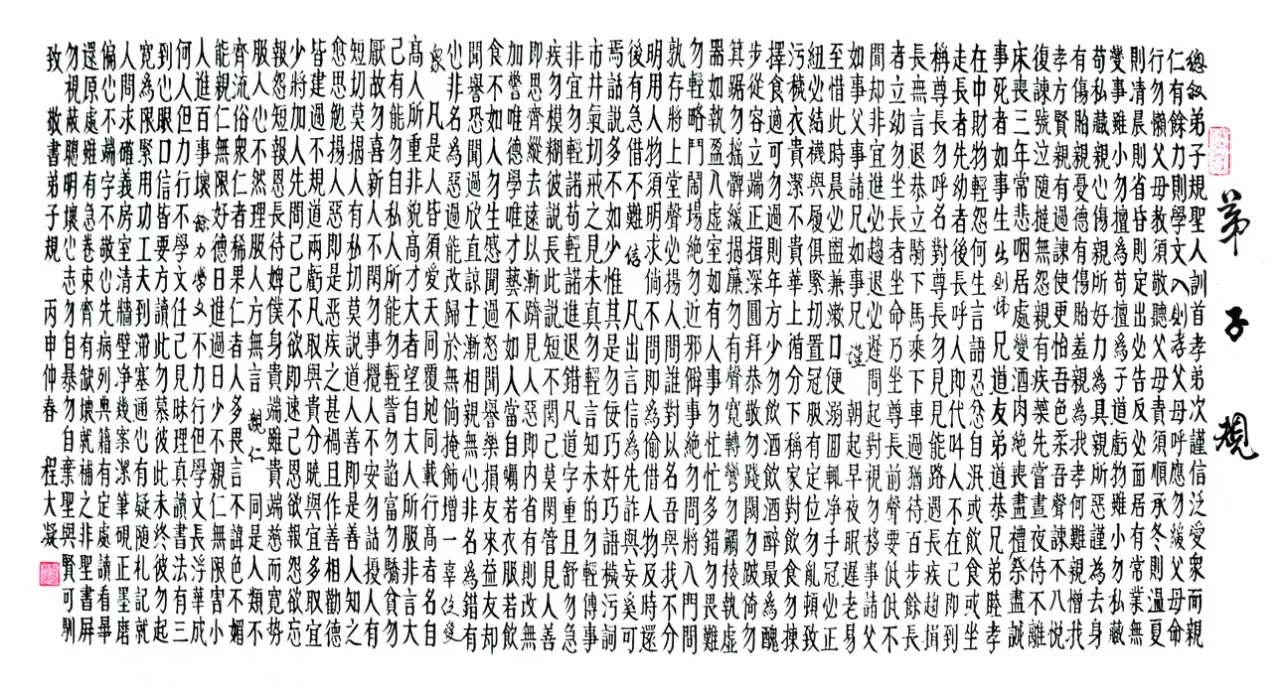 弟子規
總敘弟子規聖人訓首孝弟次謹信泛愛眾而親
仁有餘力則學文入則孝父母呼應勿緩父母命
行勿懶父母教須敬聽父母責須順承冬則溫夏
則清晨則省昏則定出必告反必面居有常業無
變事雖小勿擅為苟擅為子道虧物雖小勿私藏
苟私藏親心傷親所好力為具親所惡謹為去身
有傷貽親憂德有傷貽親羞親愛我孝何難親憎我
孝方賢親有過諫使更怡吾色柔吾聲諫不入悅
復諫號泣隨撻無怨親有疾藥先嘗晝夜侍不離
床喪三年常悲咽居處變酒肉絕喪盡禮祭盡誠
事死者如事生出則悌兄道友弟道恭兄弟睦孝
在中財物輕怨何生言語忍忿自泯或飲食或坐
走長者先幼者後長呼人即代叫人不在己即到
稱尊長勿呼名對尊長勿見能路遇長疾趨揖
長無言退恭立騎下馬乘下車過猶待百步餘長
者立幼勿坐長者坐命乃坐尊長前聲要低低
聞却非宜進必趨退必遲問起對視勿移事諸父
如事父事諸兄如事兄謹朝起早夜眠遲老易
至惜此時晨必盥兼漱口便溺回輒淨手冠必正
紐必結襪與履俱緊切置冠服有定位勿亂頓致
污穢衣貴潔不貴華上循分下稱家對飲食勿揀
擇食適可勿過則年方少勿飲酒飲酒醉最為醜
步從容立端正揖深圓拜恭敬勿踐閾勿跛倚勿
箕踞勿搖髀緩揭簾勿有聲寬轉彎勿觸棱執虛
器如執盈入虛室如有人事勿忙忙多錯勿畏難
勿輕略鬥鬧場絕勿近邪僻事絕勿問將入門問
孰存將上堂聲必揚人問誰對以名吾與我不分
明用人物須明求倘不問即為偷借人物及時還
後有急借不難信凡出言信為先詐與妄奚可
焉話說多不如少惟其是勿佞巧奸巧語穢污詞
市井氣切戒之見未真勿輕言知未的勿輕傳事
非宜勿輕諾苟輕諾進退錯凡道字重且舒勿急
疾勿模糊彼說長此說短不關己莫閒管見人善
即思齊縱去遠以漸躋見人惡即內省有則改無
加警唯德學唯才藝不如人當自礪若衣服若飲
食不如人勿生慼聞過怒聞譽樂損友來益友却
聞譽恐聞過欣直諒士漸相親無心非名為錯有
心非名為惡過能改歸於無倘掩飾增一辜泛愛
眾凡是人皆須愛天同覆地同載行高者名自
高人所重非貌高才大者望自大人所服非言大
己有能勿自私人所能勿輕訾勿諂富勿驕貧勿
厭故勿喜新人不閒勿事攪人不安勿話擾人有
短切莫揭人有私切莫說道人善即是善人知之
愈思勉揚人惡即是惡疾之甚禍且作善相勸德
皆建過不規道兩虧凡取與貴分曉與宜多取宜
少將加人先問己己不欲即速已恩欲報怨欲忘
報怨短報恩長待婢僕身貴端雖貴端慈而寬勢
服人心不然理服人方無言親仁同是人類不
齊流俗眾仁者稀果仁者人多畏言不諱色不媚
能親仁無限好德日進過日少不親仁無限害小
人進百事壞餘力學文不力行但學文長浮華成
何人但力行不學文任己見昧理真讀書法有三
到心眼口信皆要方讀此勿慕彼此未終彼勿起
寬為限緊用功工夫到滯塞通心有疑隨札記就
人問求確義房室清牆壁淨几案潔筆硯正墨磨
偏心不端字不敬心先病列典籍有定處讀看畢
還原處雖有急卷束齊有缺壞就補之非聖書屏
勿視蔽聰明壞心志勿自暴勿自棄聖與賢可馴
致 敬書弟子規 丙申仲春 程大凝